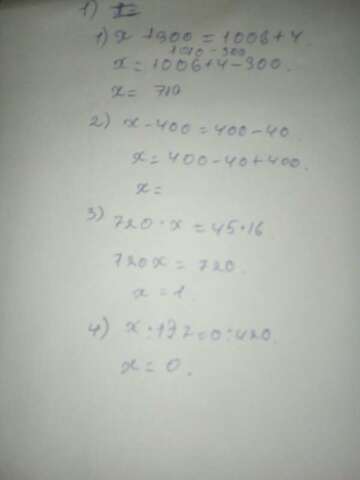 1)
1) x + 300 = 1006 + 4
1010 - 300
x = 1006 + 4 - 300.
x = 710
2) x - 400 = 400 - 40
x = 400 - 40 + 400.
x =
3) 720 · x = 45 · 16
720x = 720.
x = 1.
4) x : 172 = 0 : 420
x = 0.